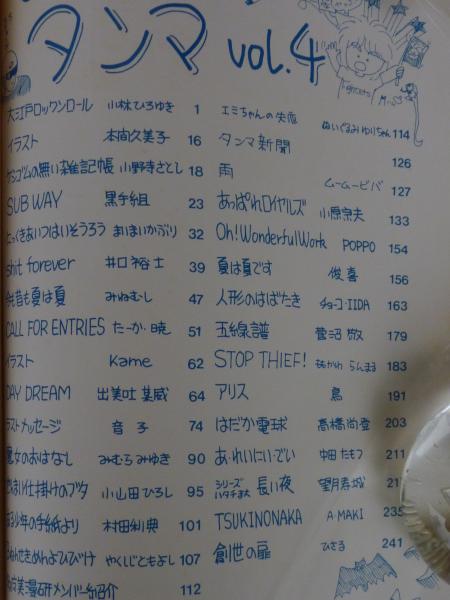 タンマ vol.4
大江戸ロックンロール 小林ひろゆき 1
イラスト 本間久美子 16
ケシゴムの無い雑記帳 小野寺さとし 18
SUB WAY 黒手組 23
とっきあいつはいそうろう まいまいかぶり 32
shit forever 井口裕士 39
も昔も夏は夏 みねむし 47
CALL FOR ENTRIES たーか・暁 51
イラスト Kame 62
DAY DREAM 出美吐 某威 64
ラストメッセージ 音子 74
魔女のおはなし みむろみゆき 90
仕掛けのブタ 小山田ひろし 95
少年の手紙より 村田利典 101
めんせきめんよひびけ やくしじともよし 107
漫研メンバー紹介 112
エミちゃんの失恋 ぬいぐるみゆりちゃん 114
タンマ新聞 126
雨 ムームービバ 127
あっぱれロイヤルズ 小原宗夫 133
Oh! Wonderful Work POPPO 154
夏は夏です 俊喜 156
人形のはばたき チョーコ・IIDA 163
五線譜 菅沼 179
STOP THIEF! らんまる 183
アリス 鳥 191
はだか電球 高橋尚登 203
あ・れいにい・でい 中田たもつ 211
シリーズハタチまえ 長い夜 望月寿城 21
TSUKINONAKA A MAKI 235
創世の扉 ひさる 241